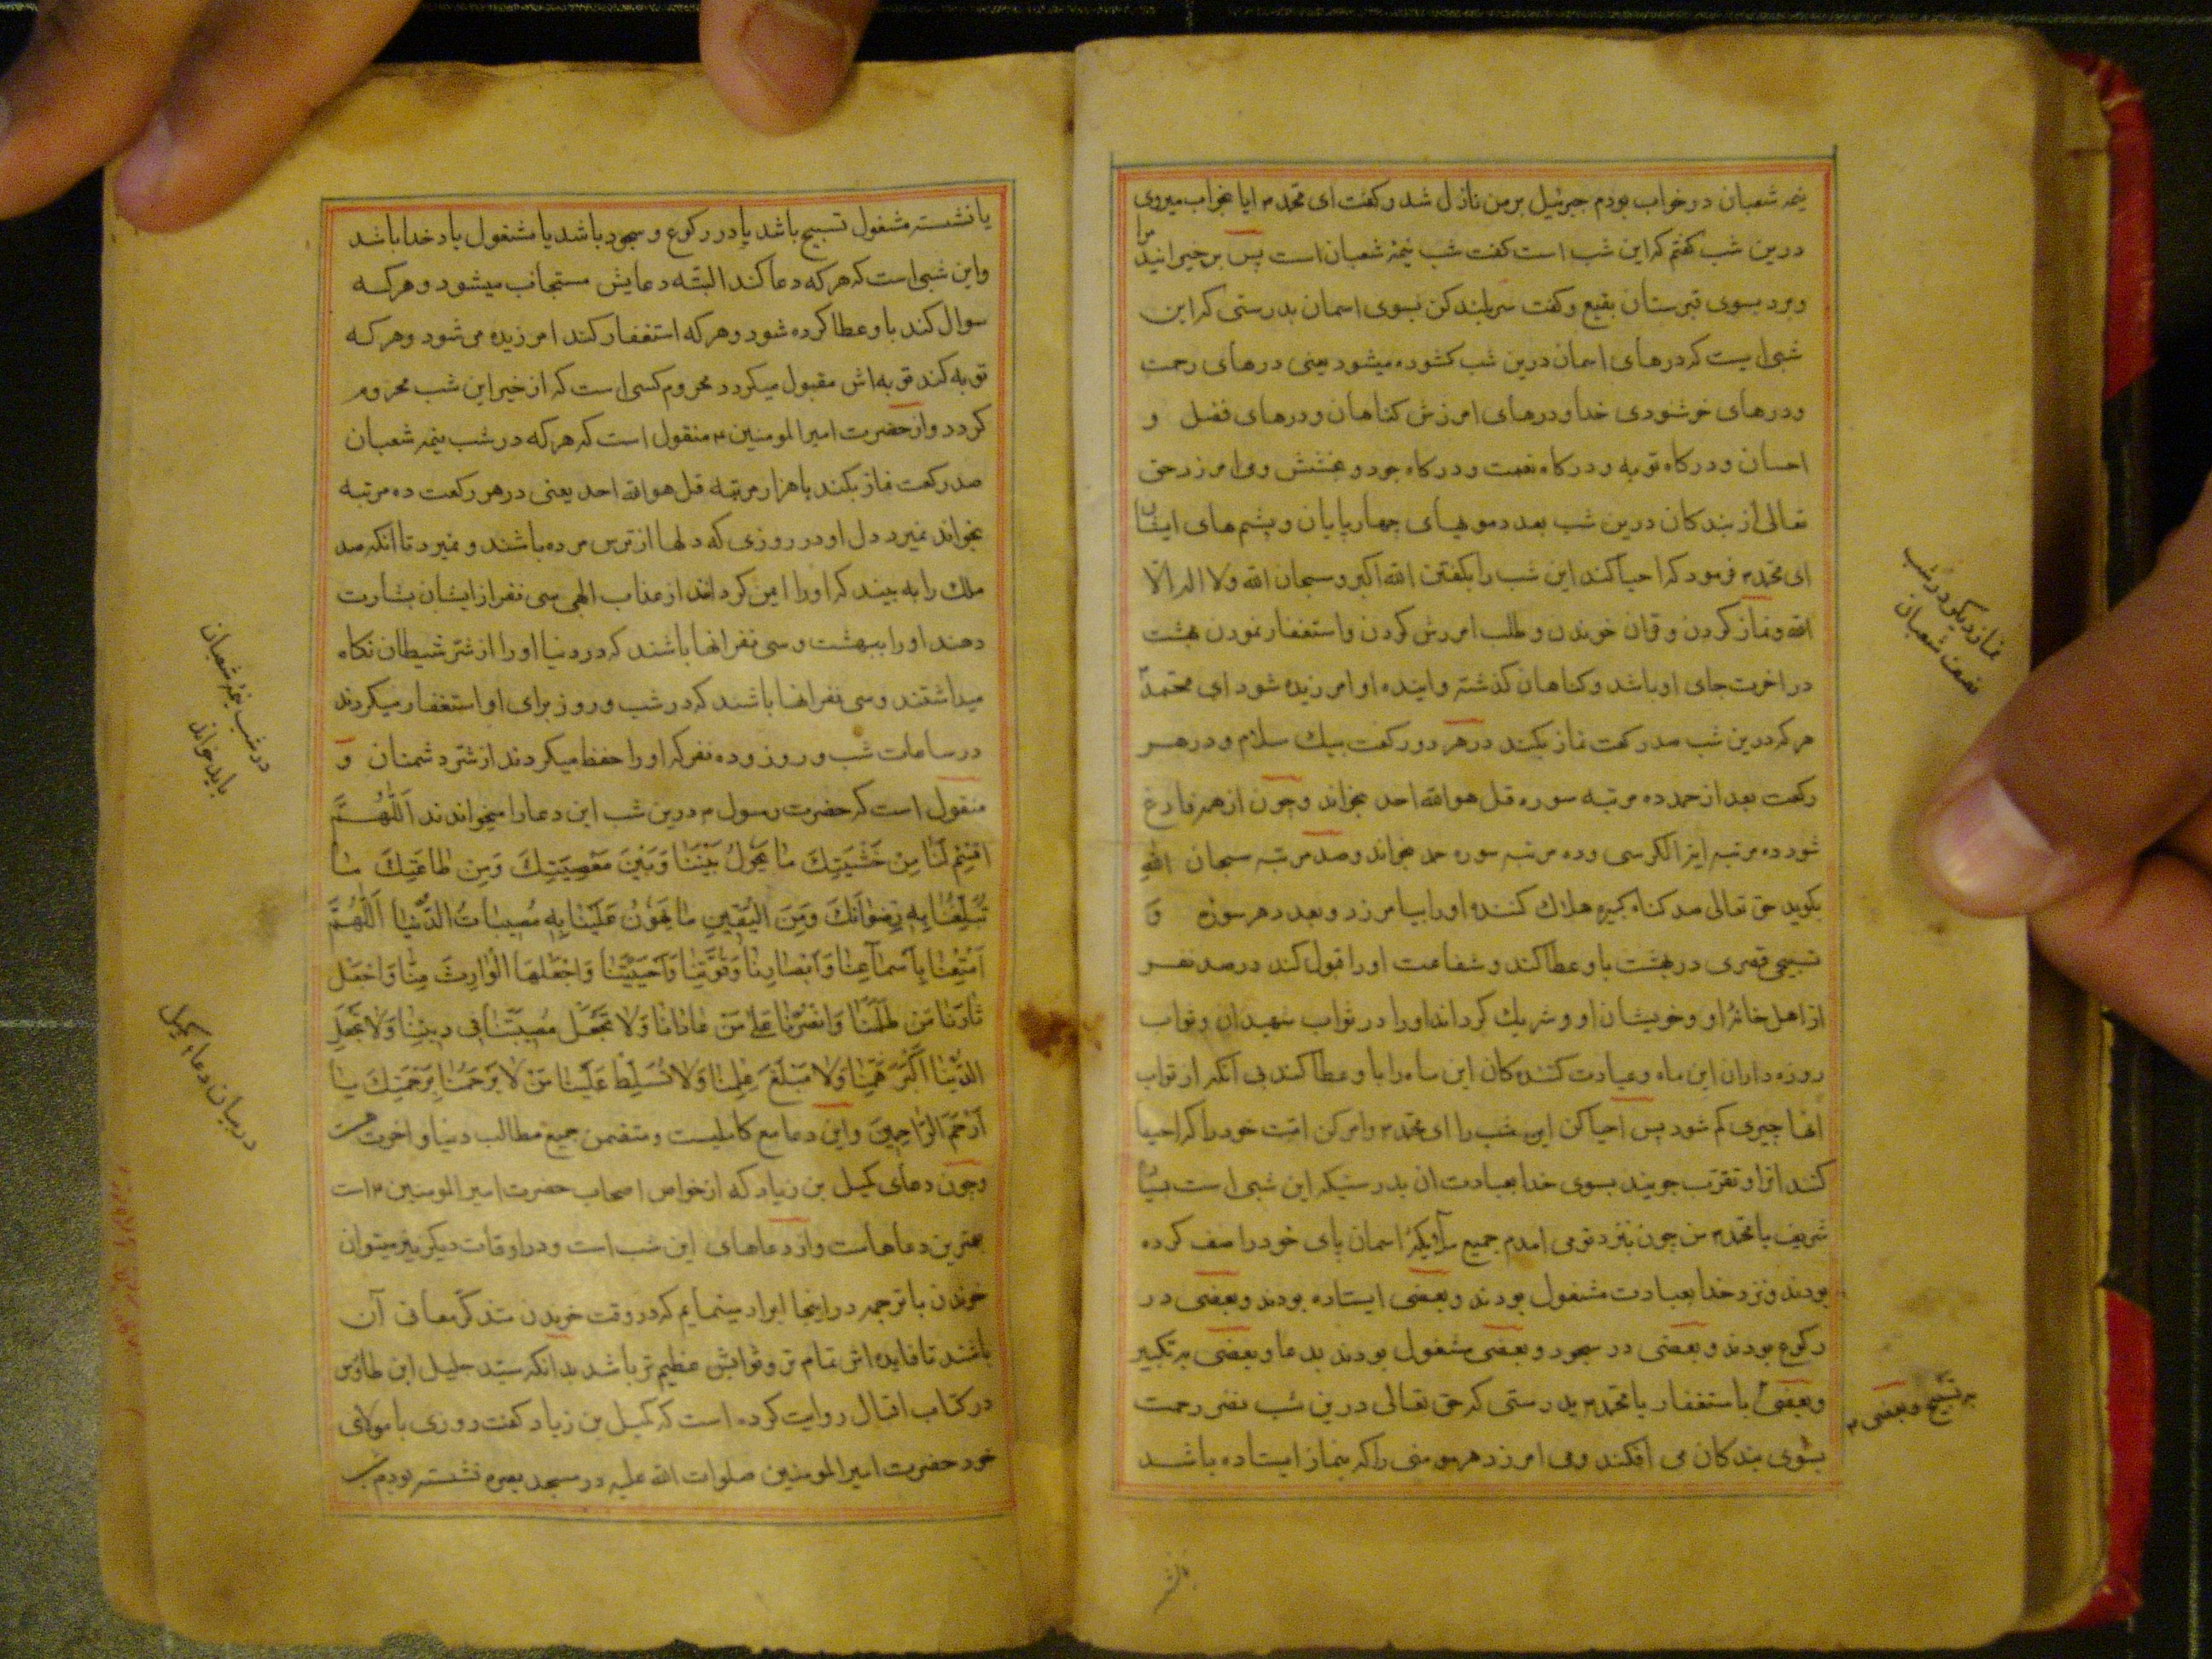 نیمه شعبان در خواب بودم جبرئیل بر من نازل شد و گفت ای محمد ایا بخواب میروی
درین شب گفتم که این شب است گفت شب نیمه شعبان است پس برخیزانید مرا
و برد بسوی قبرستان بقیع و گفت سر بلند کن بسوی اسمان بدرستی که این
شبی ایست که درهای اسمان درین شب کشوده میشود یعنی درهای رحمت
و درهای خوشنودی خدا و درهای امرزش کناهان و درهای فضل و
احسان و درکاه توبه و درکاه نعمت و درکاه جود و بخشش و می امرزد حق
تعالی از بندکان درین شب بعدد مویهای چهارپایان و پشم های ایشان
ای محمد فرمود که احیا کند این شب را بکفتن الله اکبر و سبحان الله و لا اله الا
الله و نماز کردن و قران خوندن و طلب امرزش کردن و استغفار نمودن بهشت
در اخرت جای او باشد و کناهان کذشته و اینده او امرزیده شود ای محمد
هر که درین شب صد رکعت نماز بکند در هر دو رکعت بیک سلام و در هر
رکعت بعد از حمد ده مرتبه سوره قل هو الله احد بخواند و چون از همه فارغ
شود ده مرتبه ایة الکرسی و ده مرتبه سوره حمد بخواند و صد مرتبه سبحان الله
بکوید حق تعالی صد کناه کبیره هلاک کننده او را بیامرزد و بعدد هر سوره و
تسبیحی قصری در بهشت باو عطا کند و شفاعت او را قبول کند در صد نفر
از اهل خانه او و خویشان او و شریک کرداند او را در ثواب شهیدان و ثواب
روزه داران این ماه و عبادت کننده کان این ماه را باو عطا کند بی آنکه از ثواب
انها چیزی کم شود پس احیا کن این شب را ای محمد و امر کن امت خود را که احیا
کنند انرا و تقرب جویند بسوی خدا بعبادت ان بدرستیکه این شبی است بسیار
شریف یا محمد من چون بنزد تو می امدم جمیع ملایکه اسمان پای خود را صف کرده
بودند و نزد خدا بعبادت مشغول بودند و بعضی ایستاده بودند و بعضی در
رکوع بودند و بعضی در سجود و بعضی مشغول بودند بدعا و بعضی به تکبیر
و بعضی باستغفار یا محمد بدرستی که حق تعالی درین شب نظر رحمت
بسوی بندکان می افکند و می امرزد هر مومنی را که بنماز ایستاده باشد
نماز دیکر در شب
نصف شعبان
به تسبیح و بعضی
یا نشسته مشغول تسبیح باشد یا در رکوع و سجود باشد یا مشغول یاد خدا باشد
و این شبی است که هر که دعا کند البته دعایش مستجاب میشود و هر که
سوال کند باو عطا کرده شود و هر که استغفار کند امرزیده می شود و هر که
توبه کند توبه اش مقبول میکردد محروم کسی است که از خیر این شب محروم
کردد و از حضرت امیر المومنین منقول است که هر که در شب نیمه شعبان
صد رکعت نماز بکند با هزار مرتبه قل هو الله احد یعنی در هر رکعت ده مرتبه
بخواند نمیرد دل او در روزی که دلها از ترس مرده باشند و نمیرد تا انکه صد
ملک را به بیند که او را ایمن کردانند از عذاب الهی سی نفر از ایشان بشارت
دهند او را ببهشت و سی نفر انها باشند که در دنیا او را از شر شیطان نکاه
میداشتند و سی نفر انها باشند که در شب و روز برای او استغفار میکردند
در ساعات شب و روز و ده نفر که او را حفظ میکردند از شر دشمنان و
منقول است که حضرت رسول درین شب این دعا را میخواندند اَللّٰهُمَّ
اقْسِمْ لَنَا مِنْ خَشْیَتِكَ مَا یَحُولُ بَیْنَنَا وَبَیْنَ مَعْصِیَتِكَ وَمِن طَاعَتِكَ مَا
تُبَلِّغُنَا بِهِ رِضْوَانَكَ وَمِنَ الیَقِینِ مَا یَهُونُ عَلَیْنَا بِهِ مُصِیبَاتُ الدُّنْیَا اَللّٰهُمَّ
اَمْتِعْنَا بِاَسْمَاعِنَا وَاَبْصَارِنَا وَقُوَّتِنَا مَا اَحْیَیْتَنَا وَاجْعَلْهَا الْوَارِثَ مِنَّا وَاجْعَلْ
ثَارَنَا عَلیٰ مَنْ ظَلَمَنَا وَانْصُرْنَا عَلیٰ مَنْ عَادَانَا وَلَا تَجْعَلْ مُصِیبَتَنَا فِی دِینِنَا وَلَا تَجْعَلِ
الدُّنْیَا اَکْبَرَ هَمِّنَا وَلَا مَبْلَغَ عِلْمِنَا وَلَا تُسَلِّطْ عَلَیْنَا مَنْ لَا یَرْحَمُنَا بِرَحْمَتِكَ یَا
اَرْحَمَ الرَّاحِمِینَ و این دعا جامع کاملیست و متضمن جمیع مطالب دنیا و اخرت
و چون دعای کمیل بن زیاد که از خواص اصحاب حضرت امیر المومنین است
بهترین دعاهاست و از دعاهای این شب است و در اوقات دیکر نیز میتوان
خوندن با ترجمه در اینجا ایراد مینمایم که در وقت خوندن متذکر معانی آن
باشند تا فایده اش تمام تر و ثوابش عظیم تر باشد بدانکه سید جلیل ابن طاوس
در کتاب اقبال روایت کرده است که کمیل بن زیاد کفت روزی با مولای
خود حضرت امیر المومنین صلوات الله علیه در مسجد بصره نشسته بودم
در شب نیمه شعبان
باید خواند
در بیان دعاء کمیل